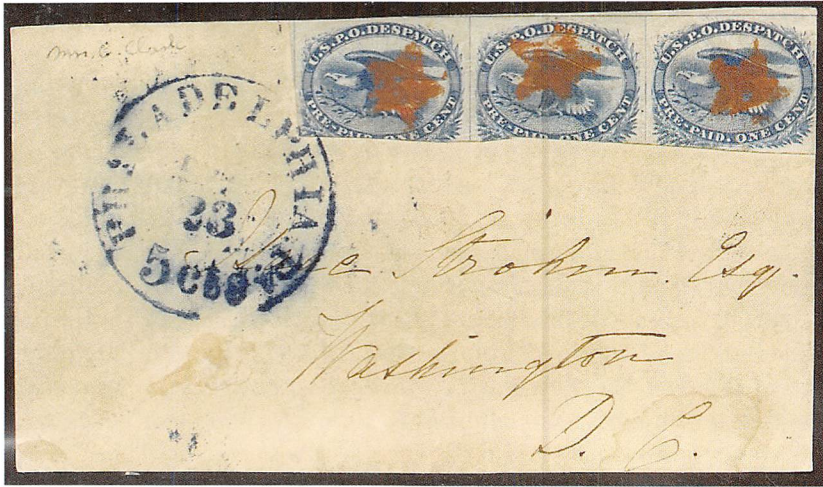 Mrs. C. Clark
U.S.P.O. DESPATCH
PRE-PAID. ONE CENT.
U.S.P.O. DESPATCH
PRE-PAID. ONE CENT.
U.S.P.O. DESPATCH
PRE-PAID. ONE CENT.
PHILADELPHIA
23
5 Cts
Strohm. Esq.
Washington
D. C.